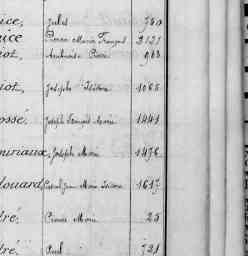 ice, Jules 780
ice Pierre Marie François 2121
iot, Ambroise Pierre 963
iot, Joseph Isidore 1065
ossé. Joseph François Marie 1441
uriaux, Joseph Marie 1476
douard, Marie Isidore 1617
dré. Pierre Marie 25
dré. Paul 721